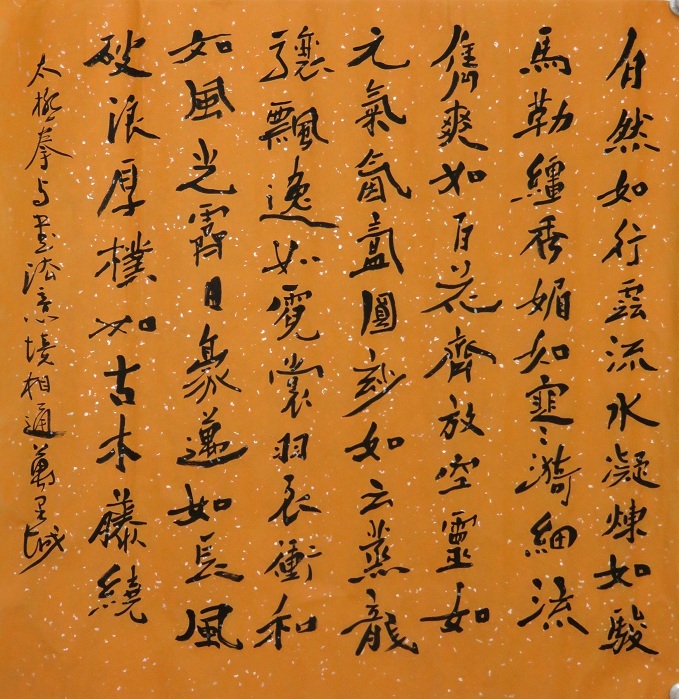 自然如行雲流水凝煉如駿
馬勒繮秀媚如漪細流
雋爽如百花齊放空靈如
元氣氤氳圓妙如云蒸龍
驤飄逸如霓裳羽衣衝和
如風光霽日豪邁如長風
破浪厚樸如古木藤繞
太極拳与書法意境相通萬里城